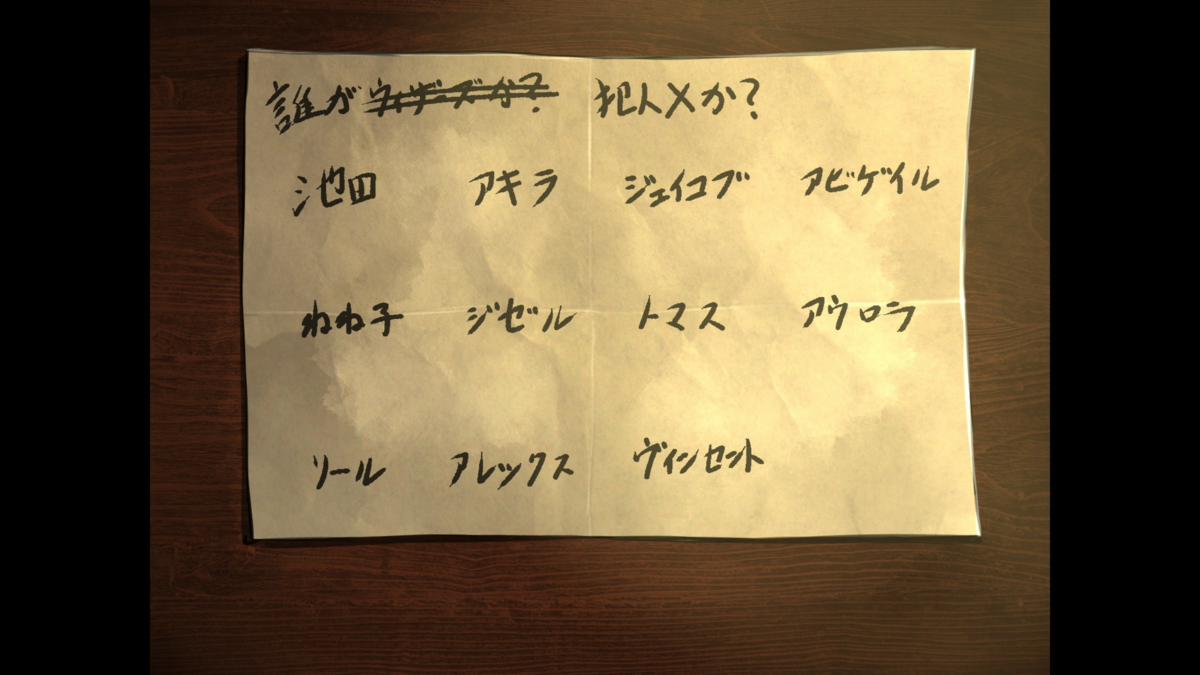 誰がウィザーズか? 犯人Xか?
池田 アキラ ジェイコブ アビゲイル
ねね子 ジゼル トマス アウロラ
ソール アレックス ヴィンセント